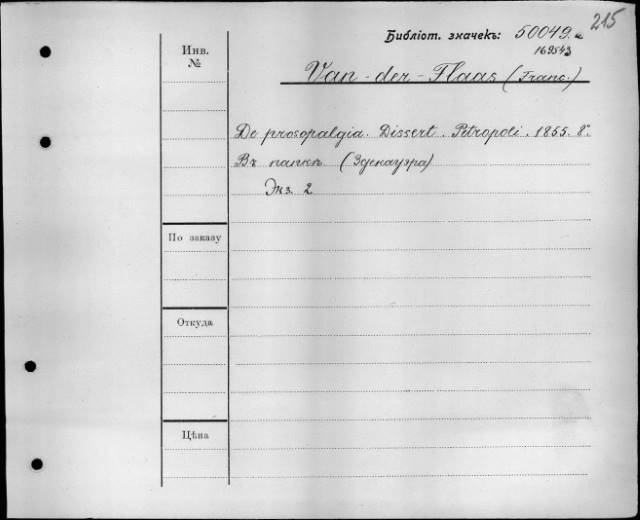 215
Библіот. значекъ: 50049.a
169543
Инв. №
Van-der-Flaas (Franc.)
De prosopalgia. Dissert. Petropoli. 1855. 8°.
Въ папкѣ. (Здекауэра)
Экз. 2
По заказу
Откуда
Цѣна